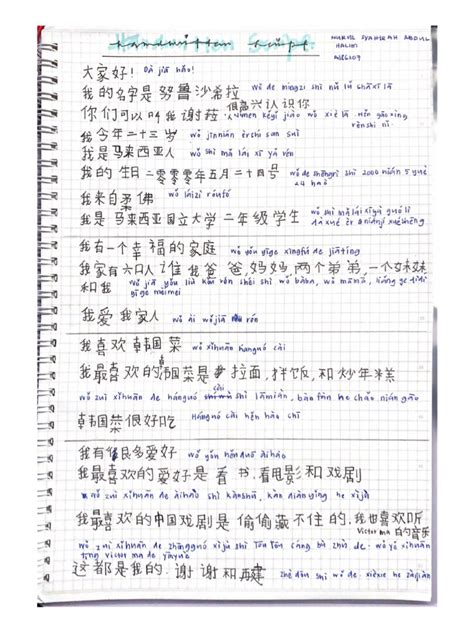 Handwritten Script
NURUL SYAHIRAH ABDUL
HALIM
大家好! Dà jiā hǎo!
我的名字是努鲁沙希拉 wǒ de míngzi shì nǔ lǔ shā xī lā
很高兴认识你
你们可以叫我谢拉 nǐmen kěyǐ jiào wǒ xiè lā Hěn gāoxìng
rènshi nǐ
我今年二十三岁 wǒ jīnnián èrshí sān suì
我是马来西亚人 wǒ shì mǎ lái xī yà rén
我的生日二零零零年五月二十四号 wǒ de shēngrì shì 2000 nián 5 yuè
24 hào
我来自柔佛 wǒ láizì róufó
我是马来西亚国立大学二年级学生 wǒ shì mǎ lái xīyà guó lì
dàxué èr niánjí xuéshēng
我有一个幸福的家庭 wǒ yǒu yīgè xìngfú de jiātíng
我家有六口人谁我爸爸,妈妈,两个弟弟,一个妹妹
和我 wǒ jiā yǒu liù kǒu rén shéi shì wǒ bàba, wǒ māmā, liǎng gè dìdì
yīgè mèimei
我爱我家人 wǒ ài wǒ jiā rén
我喜欢韩国菜 wǒ xǐhuān hánguó cài
我最喜欢的韩国菜是拉面,拌饭,和炒年糕
wǒ zuì xǐhuān de hánguó shì lāmiàn, bàn fàn he chǎo niángāo
韩国菜很好吃 Hánguó cài hěn hǎo chī
我有很多爱好 wǒ yǒu hěnduō àihào
我最喜欢的爱好是看书,看电影和戏剧
wǒ zuì xǐhuān de àihào shì kànshū, kàn diànyǐng he xìjù
我最喜欢的中国戏剧是偷偷藏不住的.我也喜欢听
Victor ma 的音乐
wǒ zuì xǐhuān de zhōngguó xìjù shì tōu tōu cáng bù zhù de. wǒ yě xǐhuān
tīng Victor ma de yīnyuè
这都是我的.谢谢和再建 zhè dōu shì wǒ de. xièxie he zàijiàn